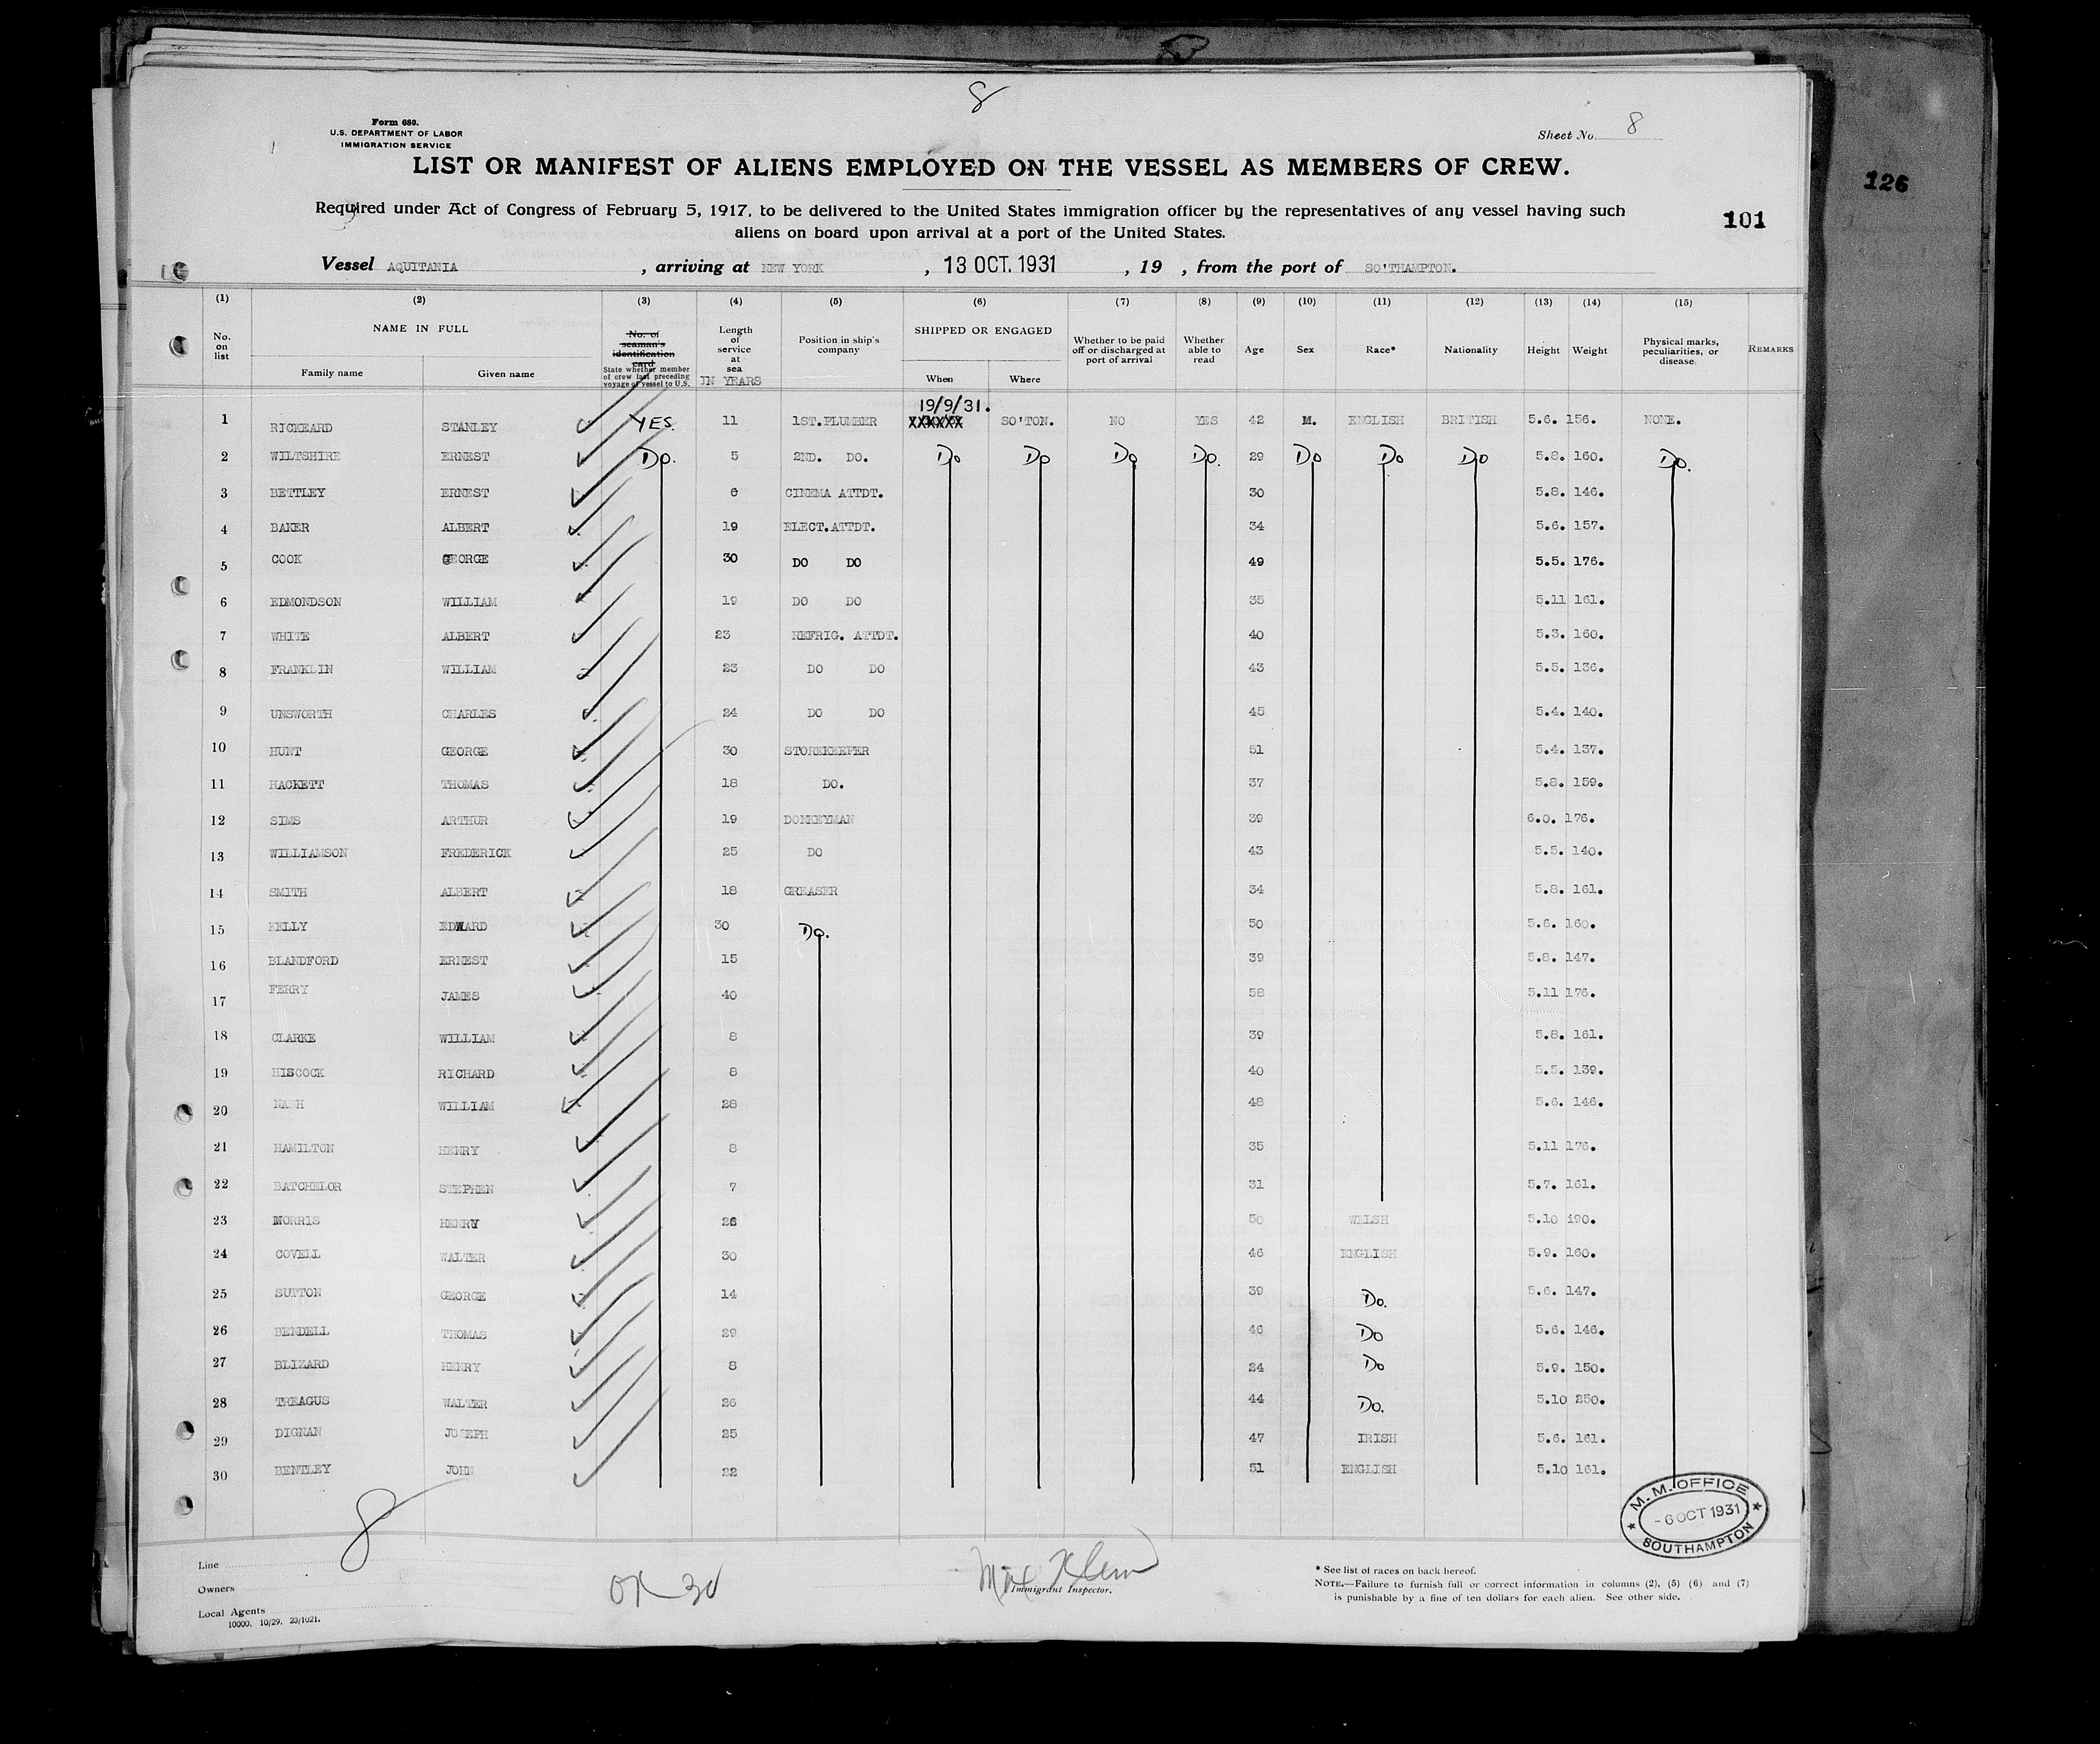 8
Form 680.
U.S. DEPARTMENT OF LABOR
IMMIGRATION SERVICE
Sheet No. 8
LIST OR MANIFEST OF ALIENS EMPLOYED ON THE VESSEL AS MEMBERS OF CREW.
126
Required under Act of Congress of February 5, 1917, to be delivered to the United States immigration officer by the representatives of any vessel having such
aliens on board upon arrival at a port of the United States.
101
Vessel AQUITANIA , arriving at NEW YORK , 13 OCT. 1931 , 19 , from the port of SO'THAMPTON.
(1) (2) (3) (4) (5) (6) (7) (8) (9) (10) (11) (12) (13) (14) (15)
No. on list
NAME IN FULL
Family name Given name
No. of seaman's identification card
State whether member of crew last preceding voyage of vessel to U.S.
Length of service at sea IN YEARS
Position in ship's company
SHIPPED OR ENGAGED
When Where
Whether to be paid off or discharged at port of arrival
Whether able to read
Age Sex Race* Nationality Height Weight
Physical marks, peculiarities, or disease
REMARKS
19/9/31.
1 RICKEARD STANLEY YES. 11 1ST.PLUMBER XXXXXX SO'TON. NO YES 42 M. ENGLISH BRITISH 5.6. 156. NONE.
2 WILTSHIRE ERNEST Do. 5 2ND. DO. Do Do Do Do. 29 Do Do Do 5.8. 160. Do.
3 BETTLEY ERNEST 6 CINEMA ATTDT. 30 5.8. 146.
4 BAKER ALBERT 19 ELECT.ATTDT. 34 5.6. 157.
5 COOK GEORGE 30 DO DO 49 5.5. 176.
6 EDMONDSON WILLIAM 19 DO DO 35 5.11 161.
7 WHITE ALBERT 23 REFRIG. ATTDT. 40 5.3. 160.
8 FRANKLIN WILLIAM 23 DO DO 43 5.5. 136.
9 UNSWORTH CHARLES 24 DO DO 45 5.4. 140.
10 HUNT GEORGE 30 STOREKEEPER 51 5.4. 137.
11 HACKETT THOMAS 18 DO. 37 5.8. 159.
12 SIMS ARTHUR 19 DONKEYMAN 39 6.0. 176.
13 WILLIAMSON FREDERICK 25 DO 43 5.5. 140.
14 SMITH ALBERT 18 GREASER 34 5.8. 161.
15 KELLY EDWARD 30 Do. 50 5.6. 160.
16 BLANDFORD ERNEST 15 39 5.8. 147.
17 FERRY JAMES 40 58 5.11 176.
18 CLARKE WILLIAM 8 39 5.8. 161.
19 HISCOCK RICHARD 8 40 5.5. 139.
20 NASH WILLIAM 28 48 5.6. 146.
21 HAMILTON HENRY 8 35 5.11 176.
22 BATCHELOR STEPHEN 7 31 5.7. 161.
23 NORRIS HENRY 26 50 WELSH 5.10 190.
24 COVELL WALTER 30 46 ENGLISH 5.9. 160.
25 SUTTON GEORGE 14 39 Do. 5.6. 147.
26 BENDELL THOMAS 29 46 Do 5.6. 146.
27 BLIZARD HENRY 8 24 Do 5.9. 150.
28 TREAGUS WALTER 26 44 Do. 5.10 250.
29 DIGNAN JOSEPH 25 47 IRISH 5.6. 161.
30 BENTLEY JOHN 22 51 ENGLISH 5.10 161.
M. M. OFFICE
- 6 OCT 1931
SOUTHAMPTON
8
Line
Owners
Local Agents
10000. 10/29. 23/1021.
OK 30
Max Klein
Immigrant Inspector.
* See list of races on back hereof.
NOTE.—Failure to furnish full or correct information in columns (2), (5) (6) and (7)
is punishable by a fine of ten dollars for each alien. See other side.